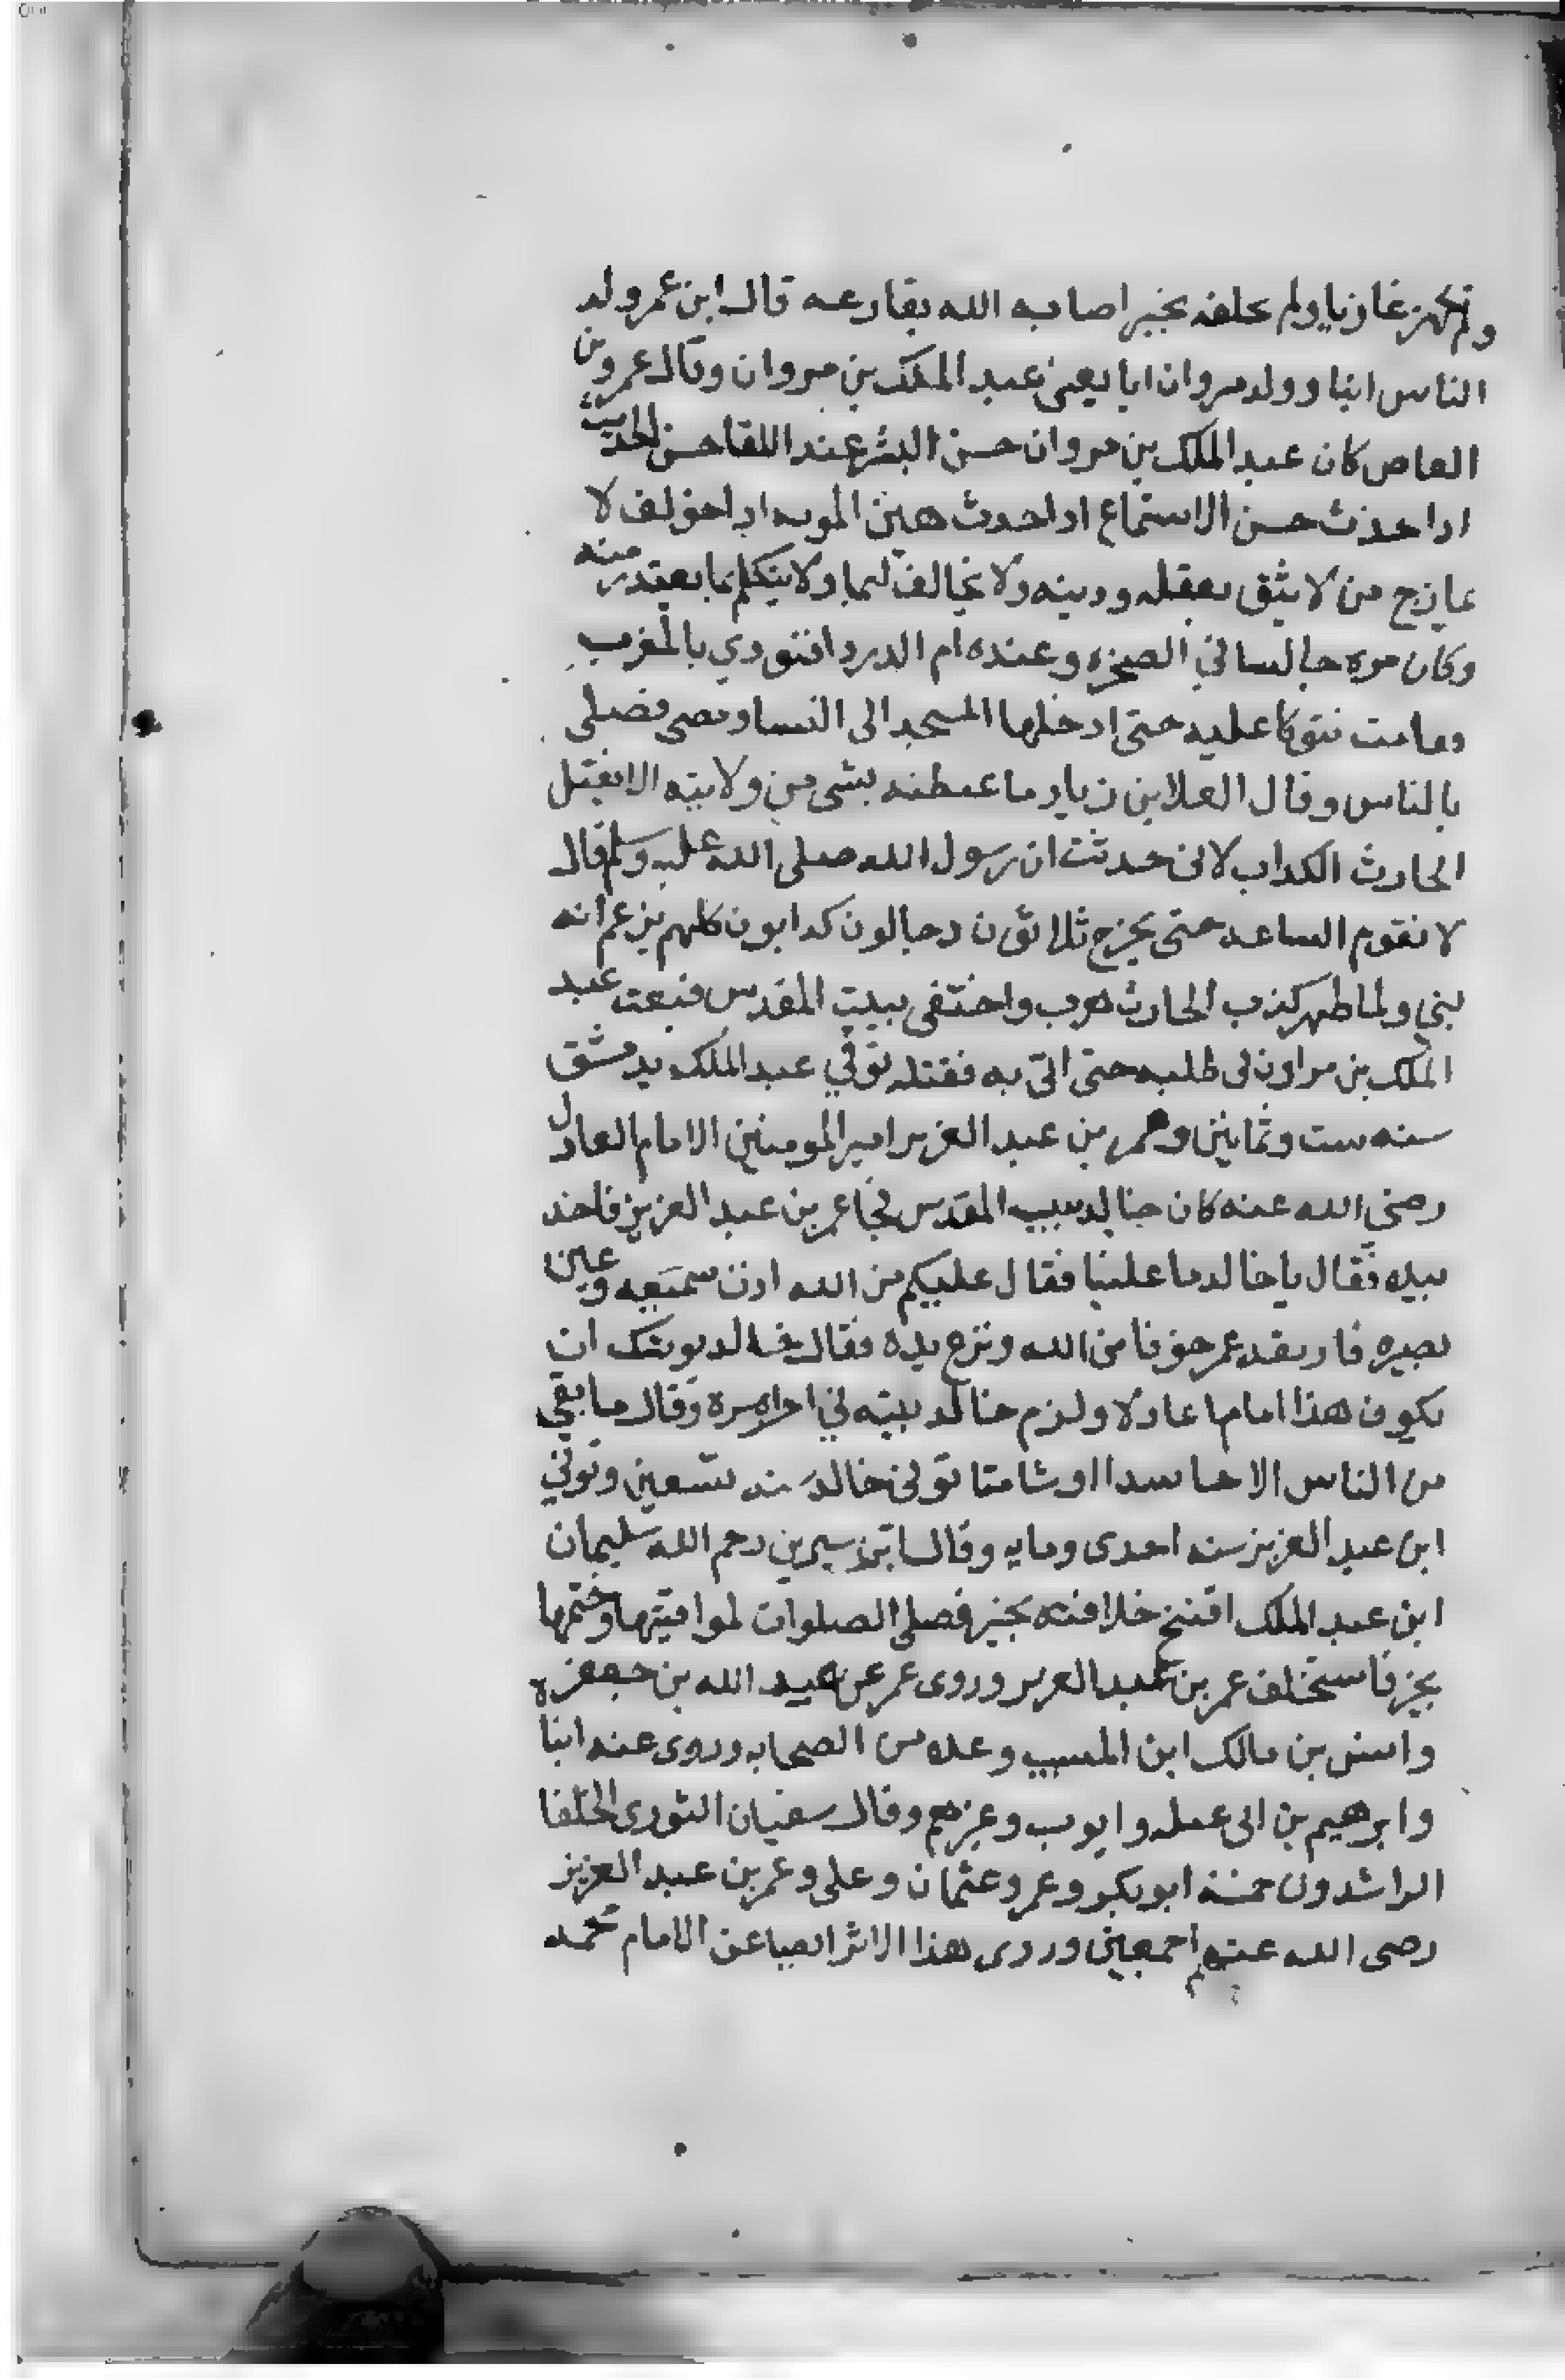 ولم يجهز غازيا ولم يخلفه بخير اصابه الله بقارعه قال ابن عمر ولد
الناس ابنا وولد مروان ابا يعني عبد الملك بن مروان وقال عمرو بن
العاص كان عبد الملك بن مروان حسن البشر عند اللقا حسن الحديث
ادا حدث حسن الاستماع ادا حدث هين المويه ادا خولف لا
يمازح من لا يثق بعقله ودينه ولا يخالف ليما ولا يتكلم بما يعتدر منه
وكان مره جالسا في الصخره وعنده ام الدردا فنودي بالمغرب
وقامت تتوكا عليه حتى ادخلها المسجد الى النسا ومضى فصلى
بالناس وقال العلا بن زياد ما غبطته بشي من ولايته الا بقتل
الحارث الكداب لانى حدثت ان رسول الله صلى الله عليه وسلم قال
لا تقوم الساعه حتى يخرج ثلاثون دجالون كدابون كلهم يزعم انه
نبي ولما ظهر كذب الحارث هرب واختفى ببيت المقدس فبعت عبد
الملك بن مراون في طلبه حتى اتي به فقتله توفي عبد الملك بدمشق
سنه ست وثمانين وعمر بن عبد العزيز امير المومنين الامام العادل
رضي الله عنه كان خالد ببيت المقدس فجا عمر بن عبد العزيز فاخد
بيده فقال يا خالد ما علينا فقال عليكم من الله ادن سميعه وعين
بصيره فارتعد عمر خوفا من الله ونزع يده فقال خالد يوشك ان
يكون هذا اماما عادلا ولزم خالد بيته في اخر امره وقال ما بقي
من الناس الا حاسدا او شامتا توفي خالد سنه تسعين وتوفي
ابن عبد العزيز سنه احدى ومايه وقال ابن سيرين رحم الله سليمان
ابن عبد الملك افتتح خلافته بخير فصلى الصلوات لمواقيتها وختمها
بخير فاستخلف عمر بن عبد العزيز وروى عمر عن عبد الله بن جعفر
وانس بن مالك ابن المسيب وعده من الصحابه وروى عنه ابنا
وابرهيم بن ابى عبله وايوب وغيرهم وقال سفيان الثورى الخلفا
الراشدون خمسة ابو بكر وعمر وعثمان وعلى وعمر بن عبد العزيز
رضى الله عنهم اجمعين وروى هذا الاثر ايضا عن الامام محمد